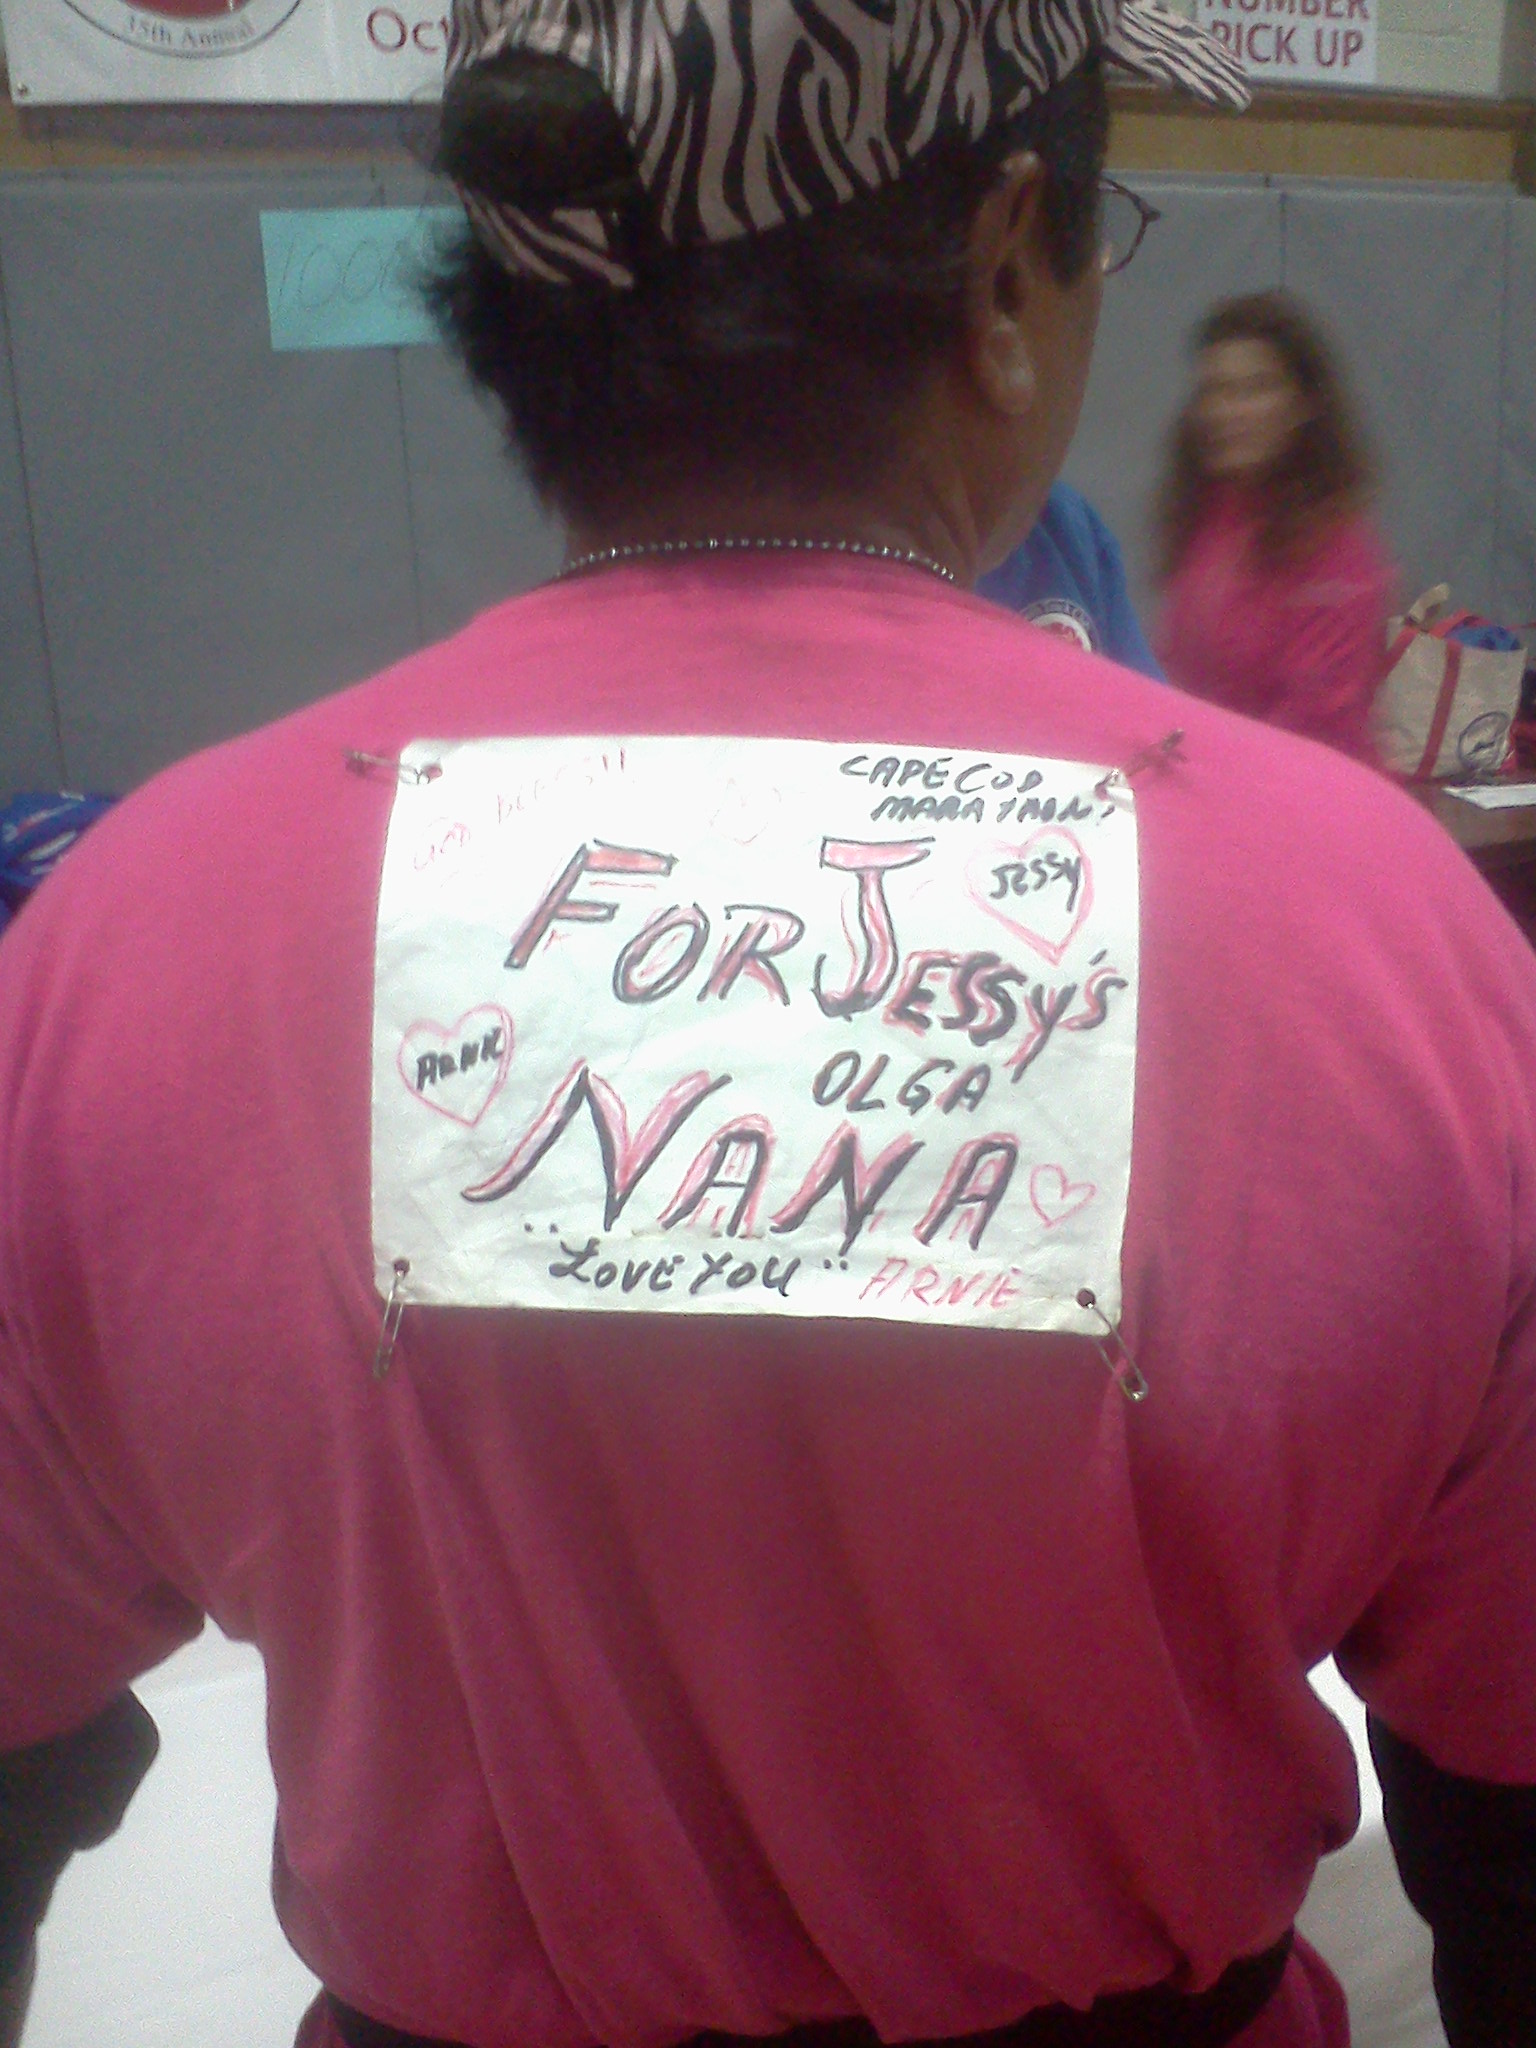 15th Annual
Oct
NUMBER
PICK UP
1000
GOD BLESS!!
CAPE COD
MARATHON
JESSY
FOR JESSY'S
ARNIE
OLGA
NANA
"LOVE YOU" ARNIE